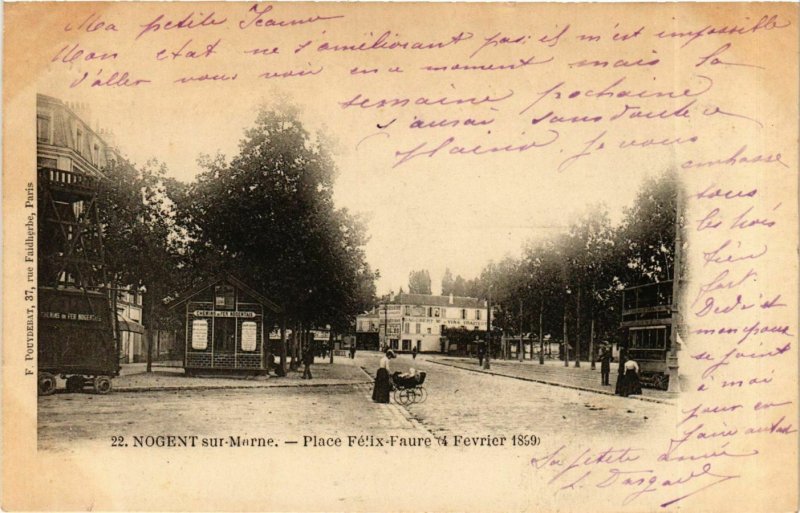 Ma petite Jeanne
Mon état ne s'améliorant pas, il m'est impossible
d'aller vous voir en ce moment mais la
semaine prochaine
j'aurai sans doute ce
plaisir. Je vous
embrasse
tous
les trois
bien
fort.
Dédé et
mon époux
se joint
à moi
pour en
faire autant
La petite amie
L.
F. POUYDEBAT, 37, rue Faidherbe, Paris
CHEMINS DE FER NOGENTAIS
CHEMINS DE FER NOGENTAIS
VINS
22. NOGENT sur-Marne. — Place Félix-Faure (4 Février 1899)